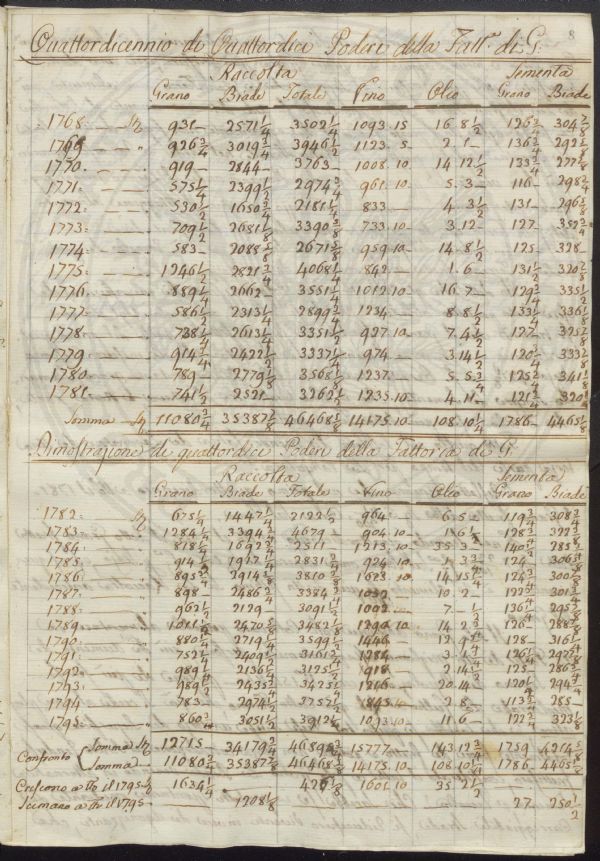 8
Quattordicennio di Quattordici Poderi della Fatt.ª di G.
Raccolta Sementa
Grano Biade Totale Vino Olio Grano Biade
1768 931 2571 1/4 3502 1/4 1093. 15 16. 8 1/2 126 3/4 304 7/8
1769 926 3/4 3019 3/4 3946 1/2 1123. 5 2. 1 136 3/4 292 5/8
1770 919 2844 3763 1008. 10 14. 12 1/2 133 3/4 277 7/8
1771 575 1/2 2399 1/2 2974 3/4 961. 10 5. 3 116 298 3/4
1772 530 1/2 1650 3/4 2181 1/4 833 4. 3 1/2 131 296 5/8
1773 709 1/2 2681 1/8 3390 5/8 733. 10 3. 12 127 352 3/4
1774 583 2088 5/8 2671 5/8 959. 10 14. 8 1/2 125 328
1775 1246 1/2 2821 3/4 4068 1/4 842 1. 6 131 1/2 320 7/8
1776 889 1/4 2662 3551 1/4 1012. 10 16. 7 129 3/4 335 1/2
1777 586 1/2 2313 1/4 2899 3/4 1234 8. 8 1/2 133 1/4 336 1/8
1778 738 1/4 2613 1/4 3351 1/2 927. 10 7. 4 1/2 127 325 7/8
1779 914 3/4 2422 1/2 3337 1/4 974 3. 14 1/2 120 333 7/8
1780 789 2779 1/8 3568 1/8 1237 5. 5 125 3/4 341 1/8
1781 741 1/2 2521 3262 1/2 1235. 10 4. 11 121 3/4 320
Somma 11080 3/4 35387 7/8 46468 5/8 14175. 10 108. 10 1/4 1786 4465 1/8
Dimostrazione di quattordici Poderi della Fattoria di G.
Raccolta Sementa
Grano Biade Totale Vino Olio Grano Biade
1782 675 1/4 1447 1/4 2122 1/2 964 6. 5 119 3/4 308 3/4
1783 1284 3/4 3394 1/4 4679 904. 10 1. 6 128 3/4 322
1784 818 1/4 1692 3/4 2511 1213. 10 35. 3 140 285
1785 914 1917 1/4 2831 924. 10 1. 3 124 306
1786 895 3/4 2914 3810 1623. 10 14. 15 124 300
1787 898 2486 3/4 3384 3/4 1052 10. 2 122 301
1788 962 1/2 2129 3091 1/2 1092 7. 136 295
1789 1011 2470 5/8 3482 1/8 1290. 10 14. 2 126 288
1790 880 1/4 2719 1/4 3599 1/2 1446 12. 9 128 316
1791 752 1/4 2409 1/4 3161 1/2 1284 3. 1 126 297
1792 989 2136 1/4 3125 918 2. 14 125 286
1793 989 2435 3/4 3425 1216 20. 14 120 294
1794 783 2974 3757 845 2. 8 113 285
1795 860 3/4 3051 1/2 3912 1/4 1093. 10 11. 6 122 323 1/8
Confronto
Somma 12715 34179 3/4 46894 3/4 15777 143. 12 3/4 1759 4214 5/8
Somma 11080 3/4 35387 7/8 46468 5/8 14175. 10 108. 10 1/4 1786 4465 1/8
Crescono a Tto il 1795 1634 1/4 426 1/8 1601. 10 35. 2 1/2
Scemano a Tto il 1795 1208 1/8 27 250 1/2